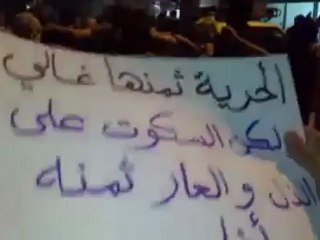 الحرية ثمنها غالي
لكن السكوت على
الذل والعار ثمنه
أغلى